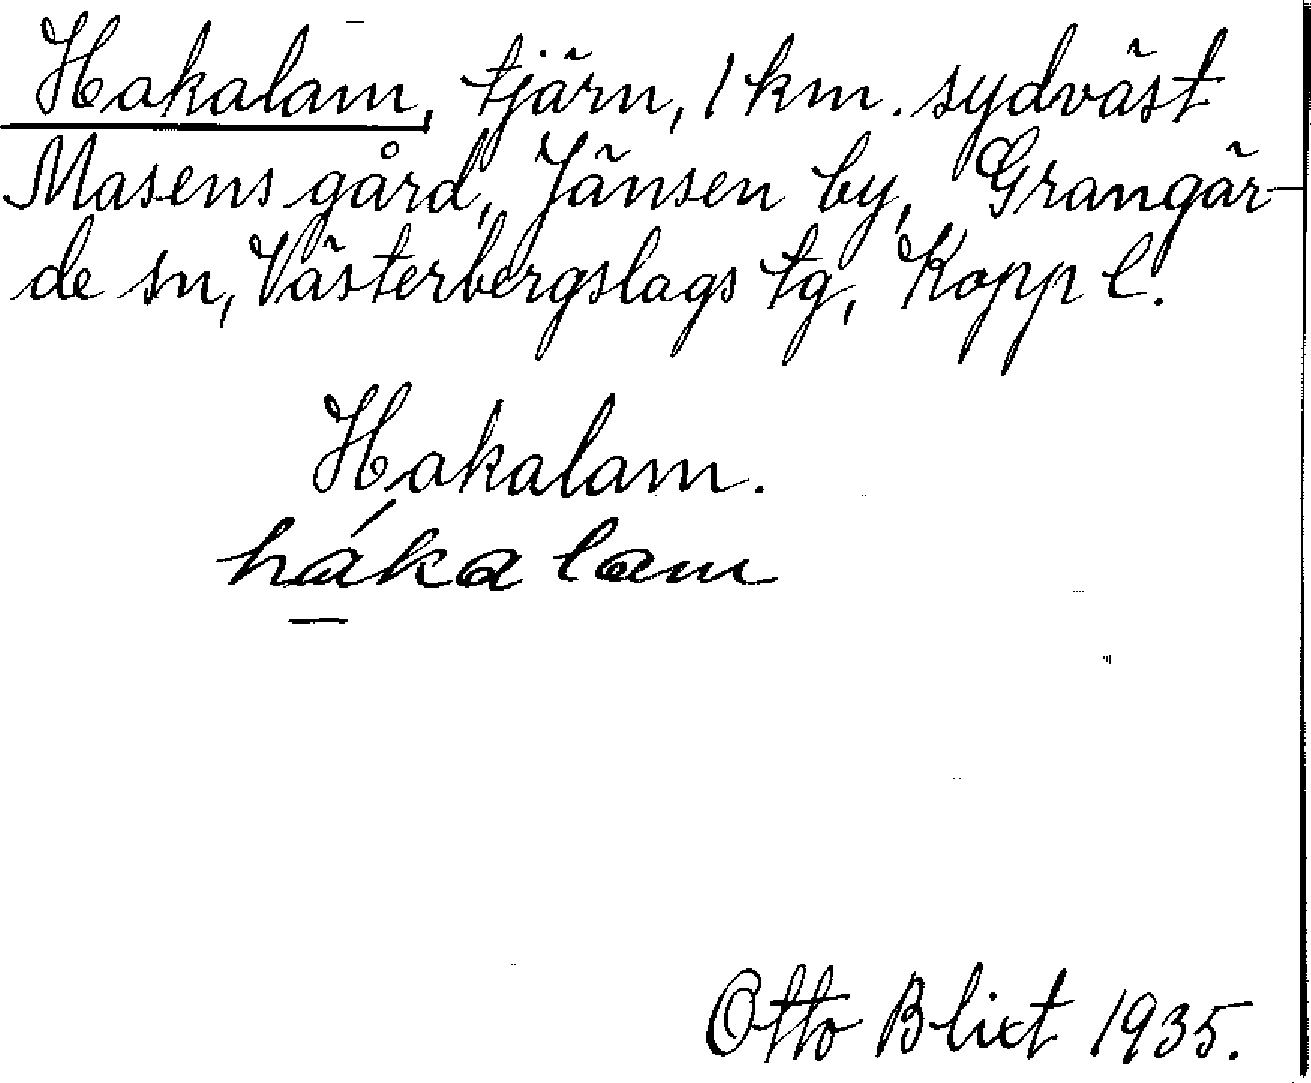 Hakalam, tjärn, 1 km. sydväst
Masens gård, Jänsen by, Grangär-
de sn, Västerbergslags tg, Kopp l.
Hakalam.
hákalam
Otto Blixt 1935.